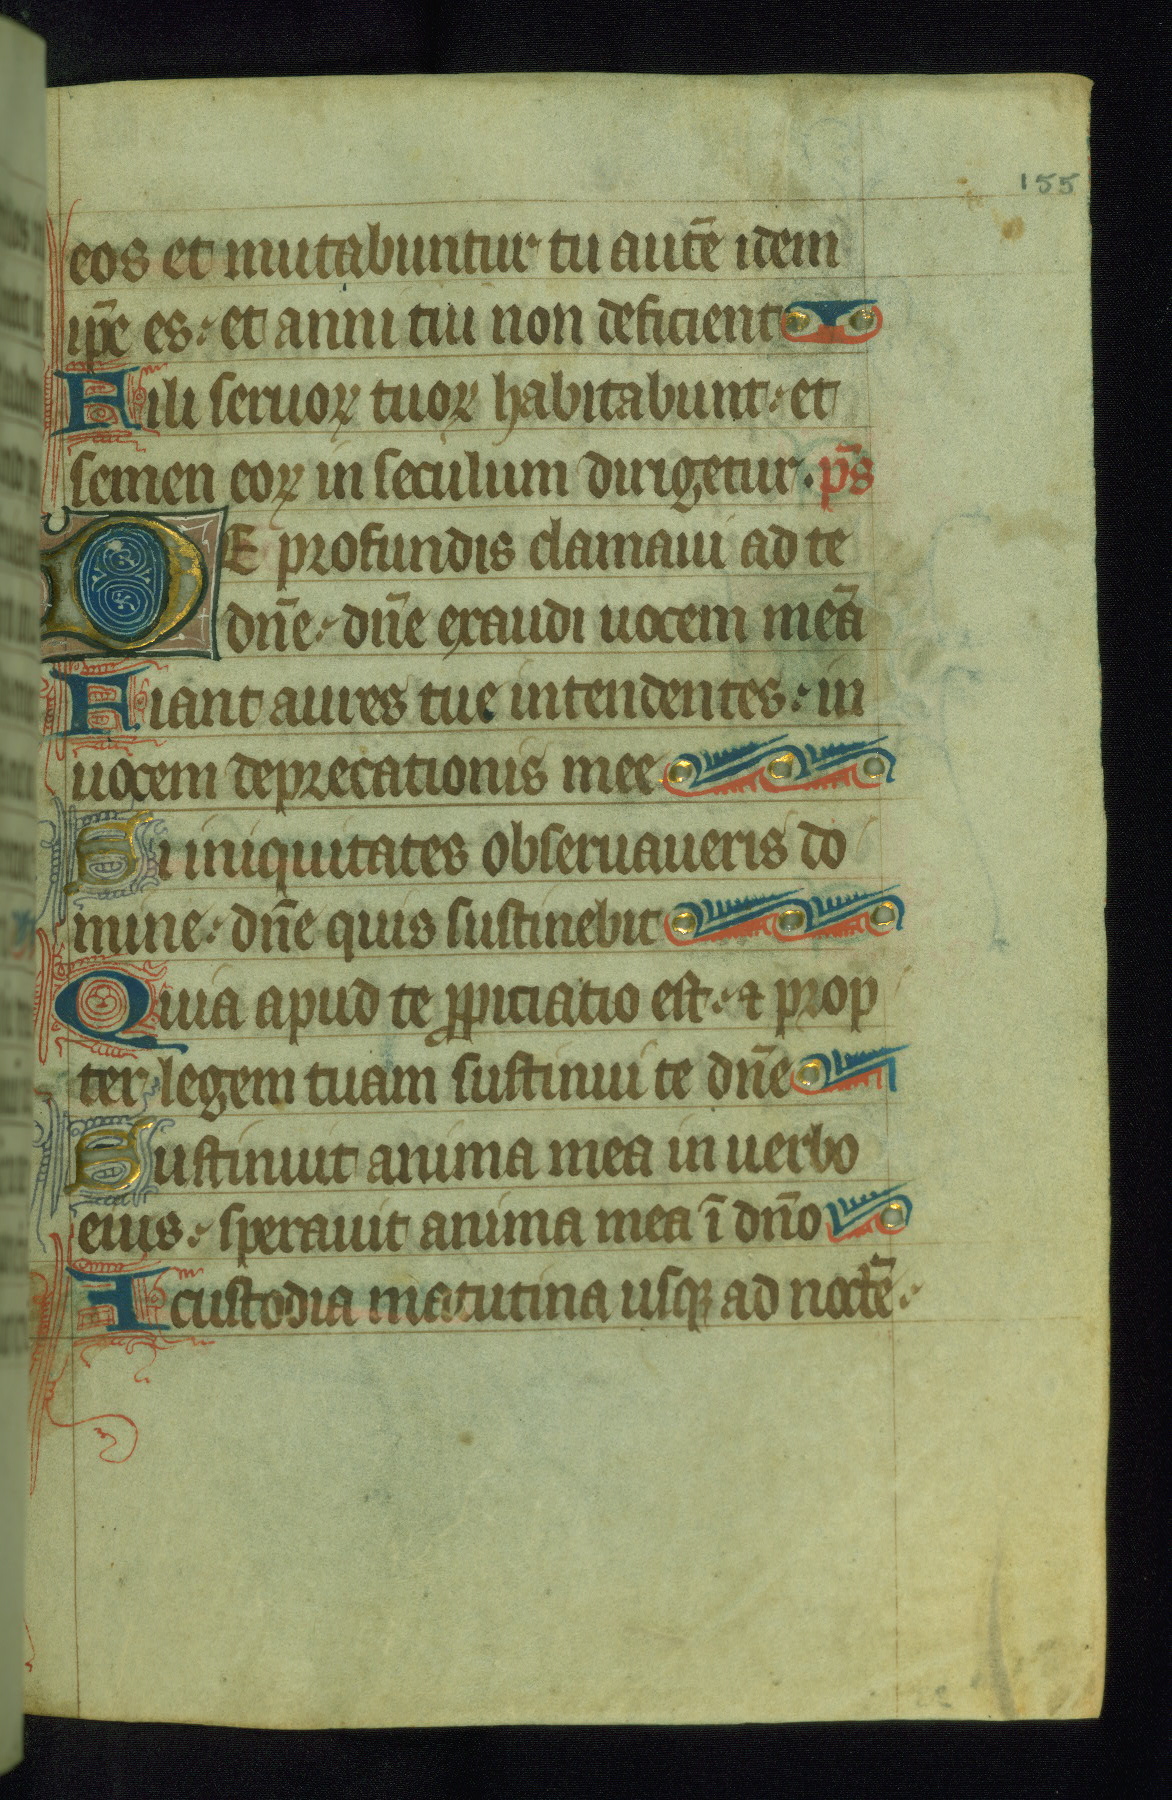 155
eos et mutabuntur tu autē idem
ip̄e es : et anni tui non deficient
Fili seruoꝝ tuoꝝ habitabunt : et
semen eoꝝ in seculum dirigetur . p̄s
DE profundis clamaui ad te
dn̄e : dn̄e exaudi uocem meā
Fiant aures tue intendentes : in
uocem deprecationis mee
Si iniquitates obseruaueris do
mine : dn̄e quis sustinebit
Quia apud te ꝓpiciatio est : ⁊ prop
ter legem tuam sustinui te dn̄e
Sustinuit anima mea in uerbo
eius : sperauit anima mea ī dn̄o
A custodia matutina usqꝫ ad noctē :